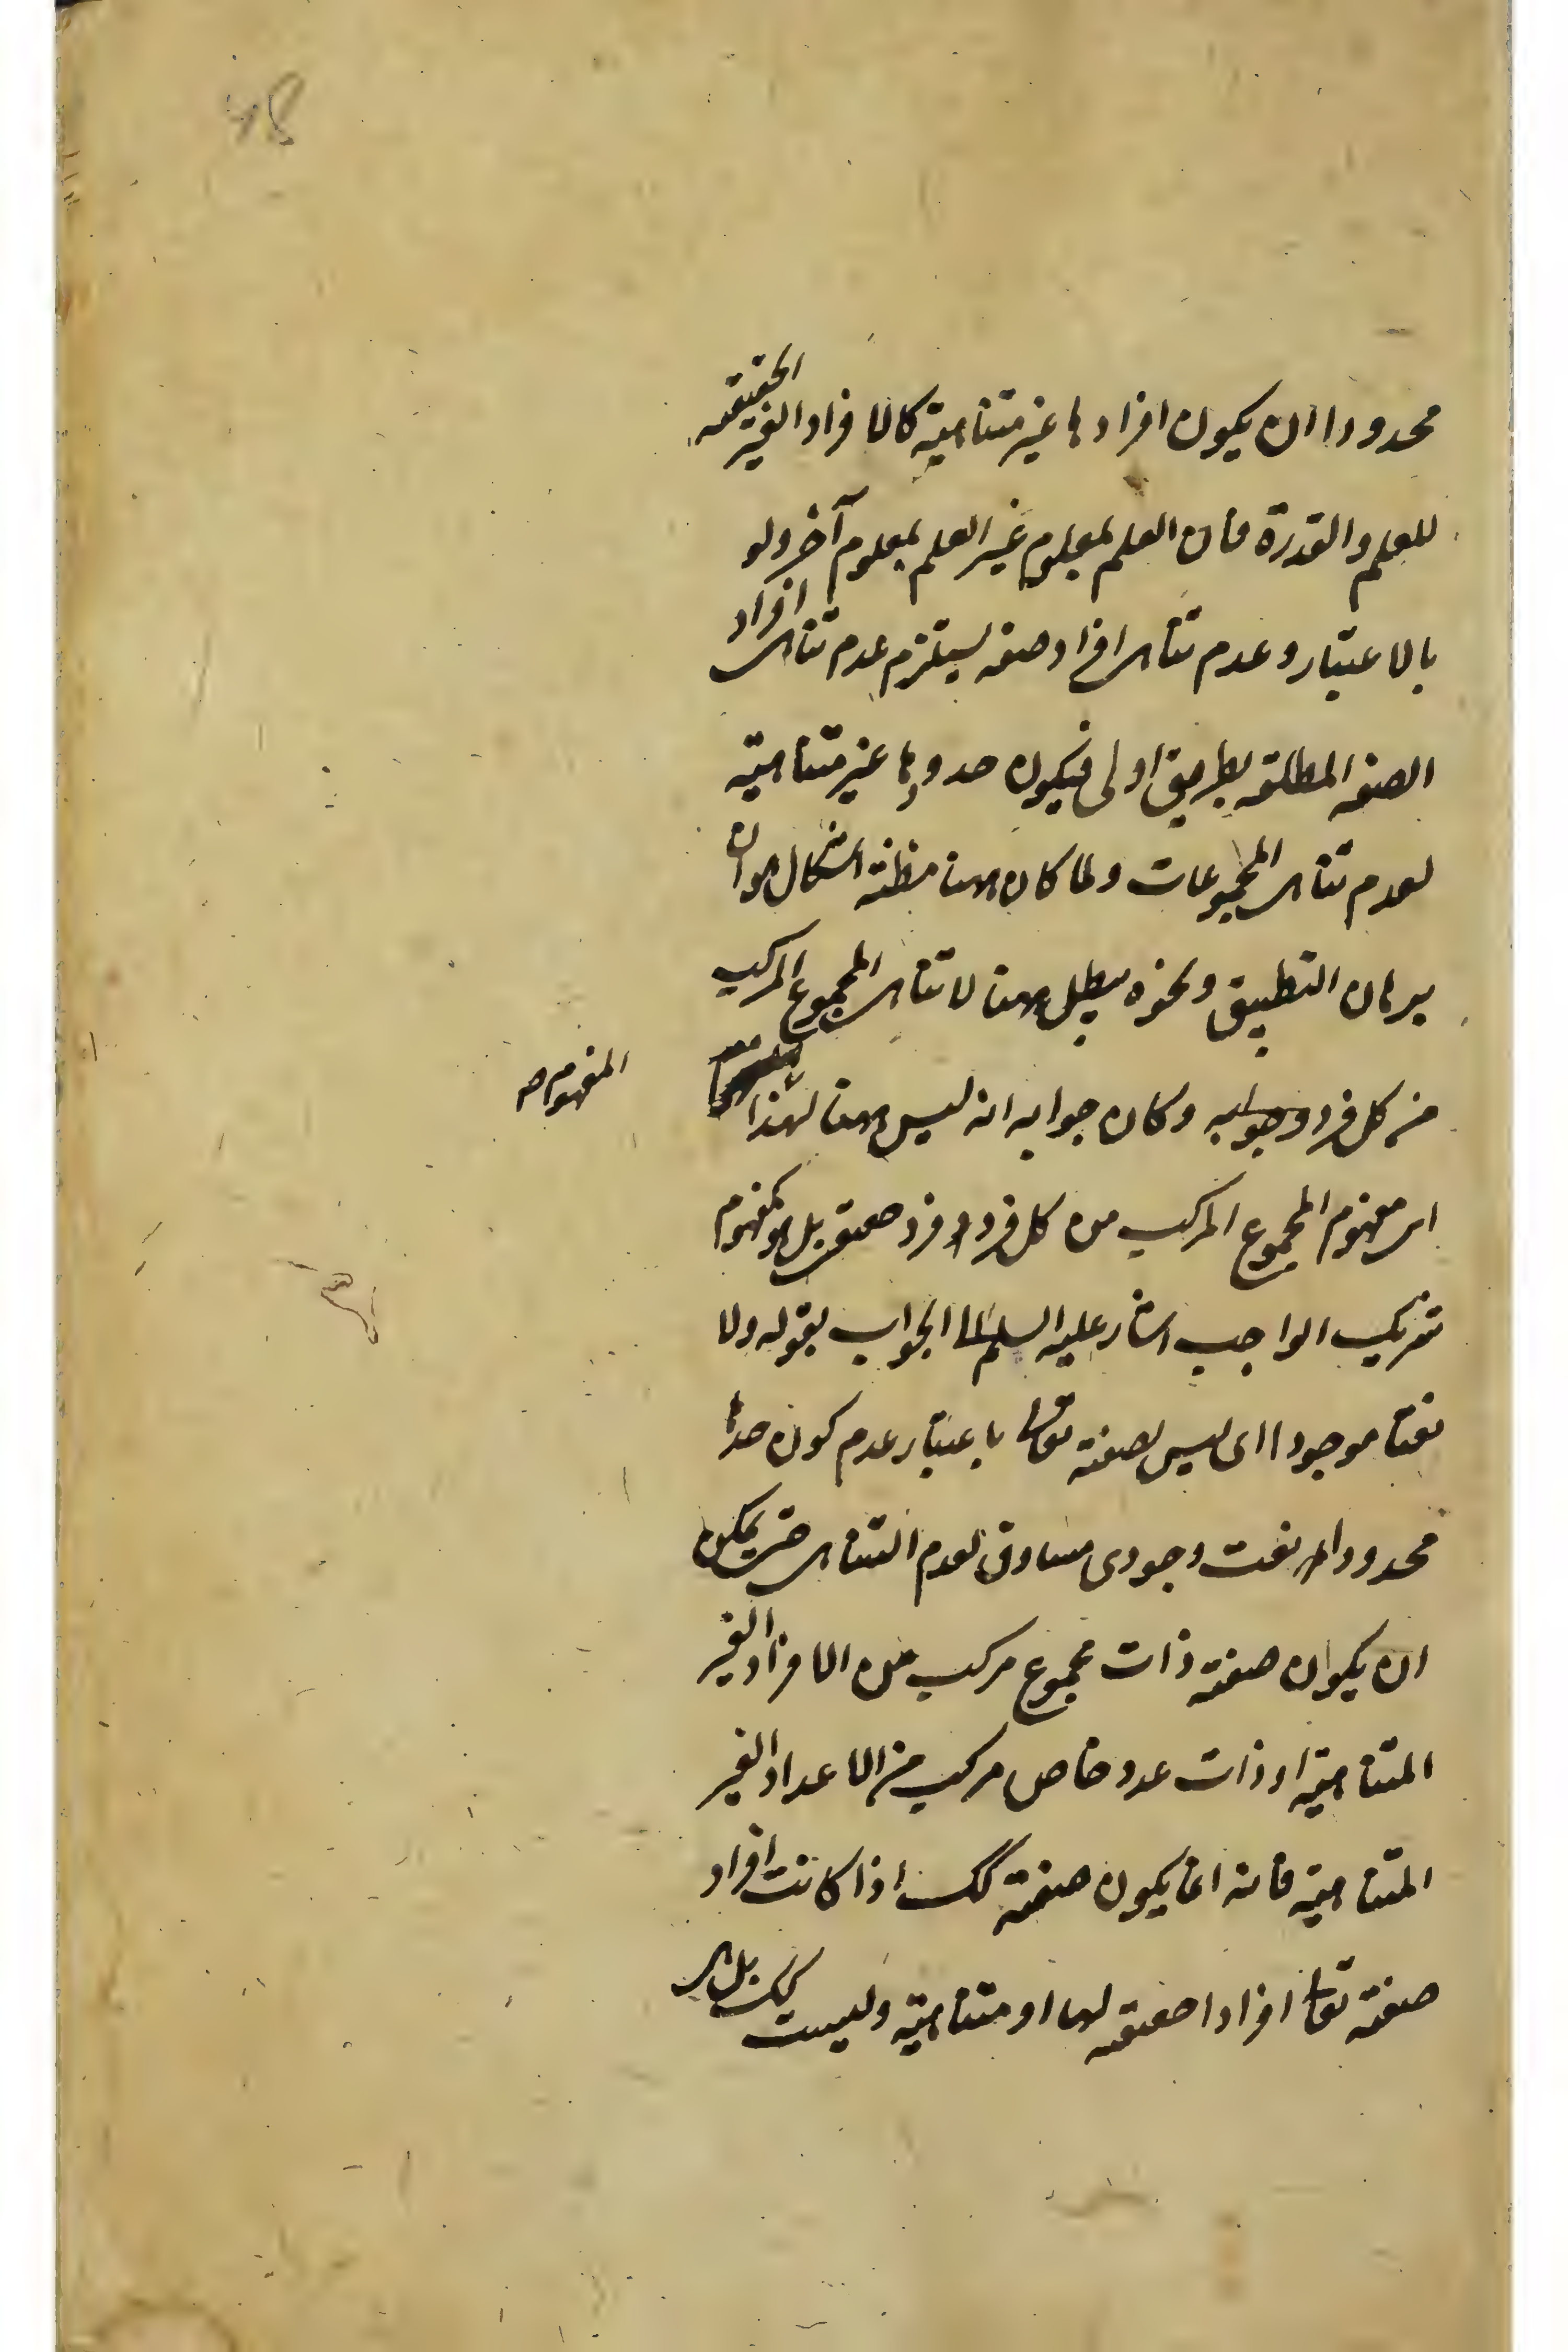 محدودا ان يكون افرادها غير متناهية كالافراد الغير الحقيقة
للعلم والقدرة فان العلم بمعلوم غير العلم بمعلوم آخر ولو
بالاعتبار وعدم تناهى افراد صفه يستلزم عدم تناهى افراد
الصفه المطلقه بطريق اولى فيكون حدودها غير متناهية
لعدم تناهى المجموعات ولما كان ههنا مظنه اشكال هو ان
برهان التطبيق ونحوه يبطل ههنا لا تناهى المجموع المركب
من كل فرد وجوابه وكان جوابه انه ليس ههنا لهذا
المفهوم صح
اى مفهوم المجموع المركب من كل فرد فرد حقيقى بل هو كمفهوم
شريك الواجب اشار عليه السلم الى الجواب بقوله ولا
نعتا موجودا اى ليس لصفته تعالى باعتبار عدم كون حدها
محدودا نعت وجودى مساوق لعدم التناهى حتى يمكن
ان يكون صفته ذات مجموع مركب من الافراد الغير
المتناهية او ذات عدد خاص مركب من الاعداد الغير
المتناهية فانه انما يكون صفته كك اذا كانت افراد
صفته تعالى افرادا حقيقه لها او متناهية وليست كك بل هى
48